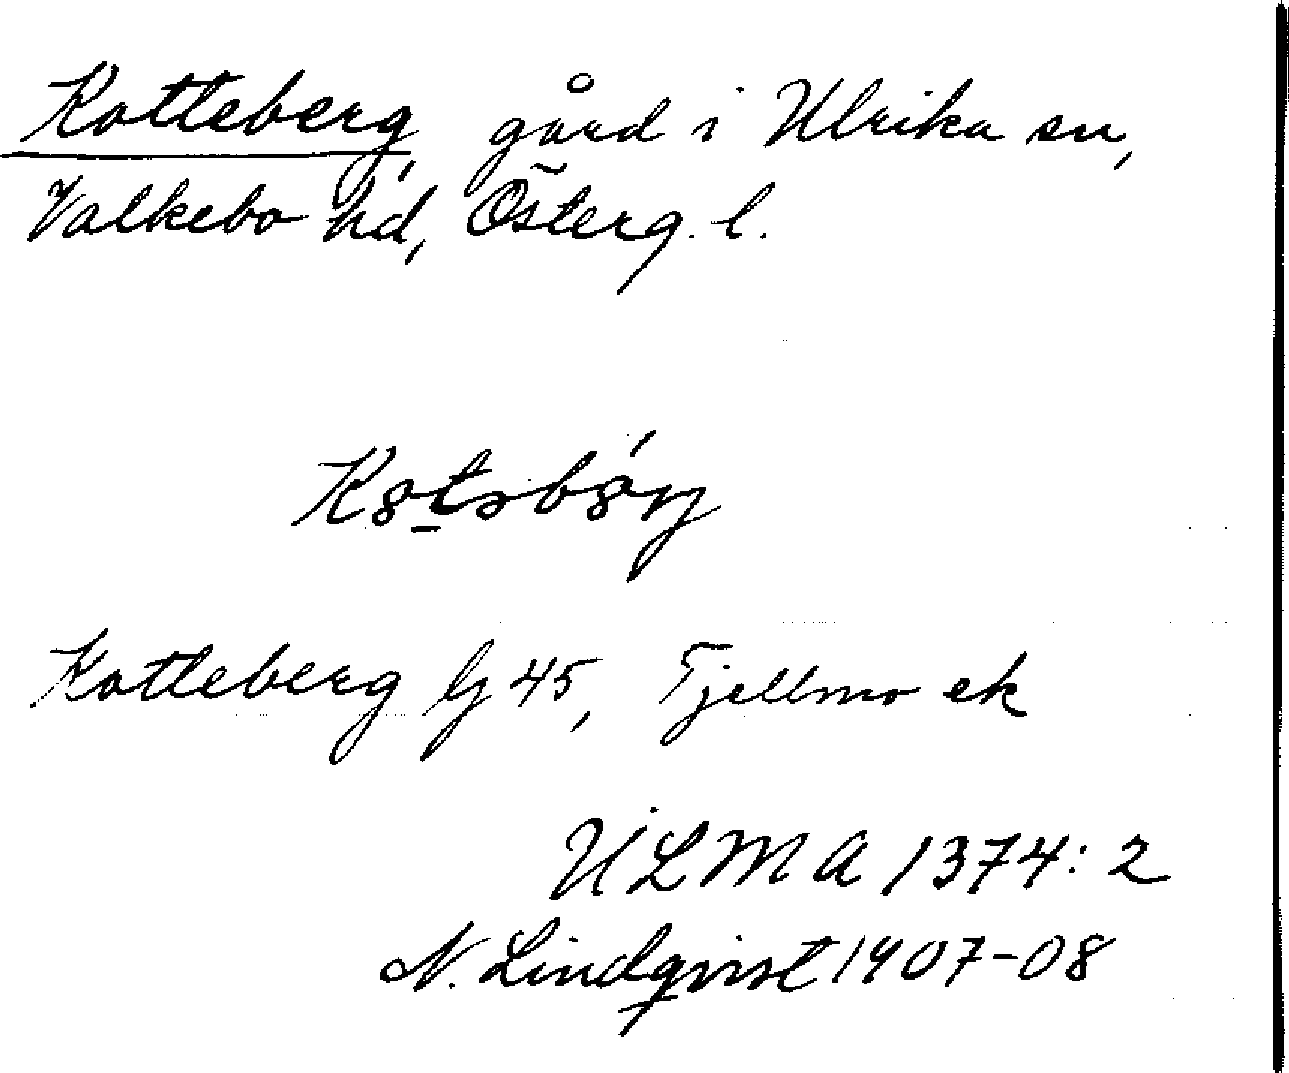 Kotteberg, gård i Ulrika sn,
Valkebo hd, Österg. l.
Kotteberg Gj 45, Tjellmo ek
ULMA 1374:2
N. Lindqvist 1907-08